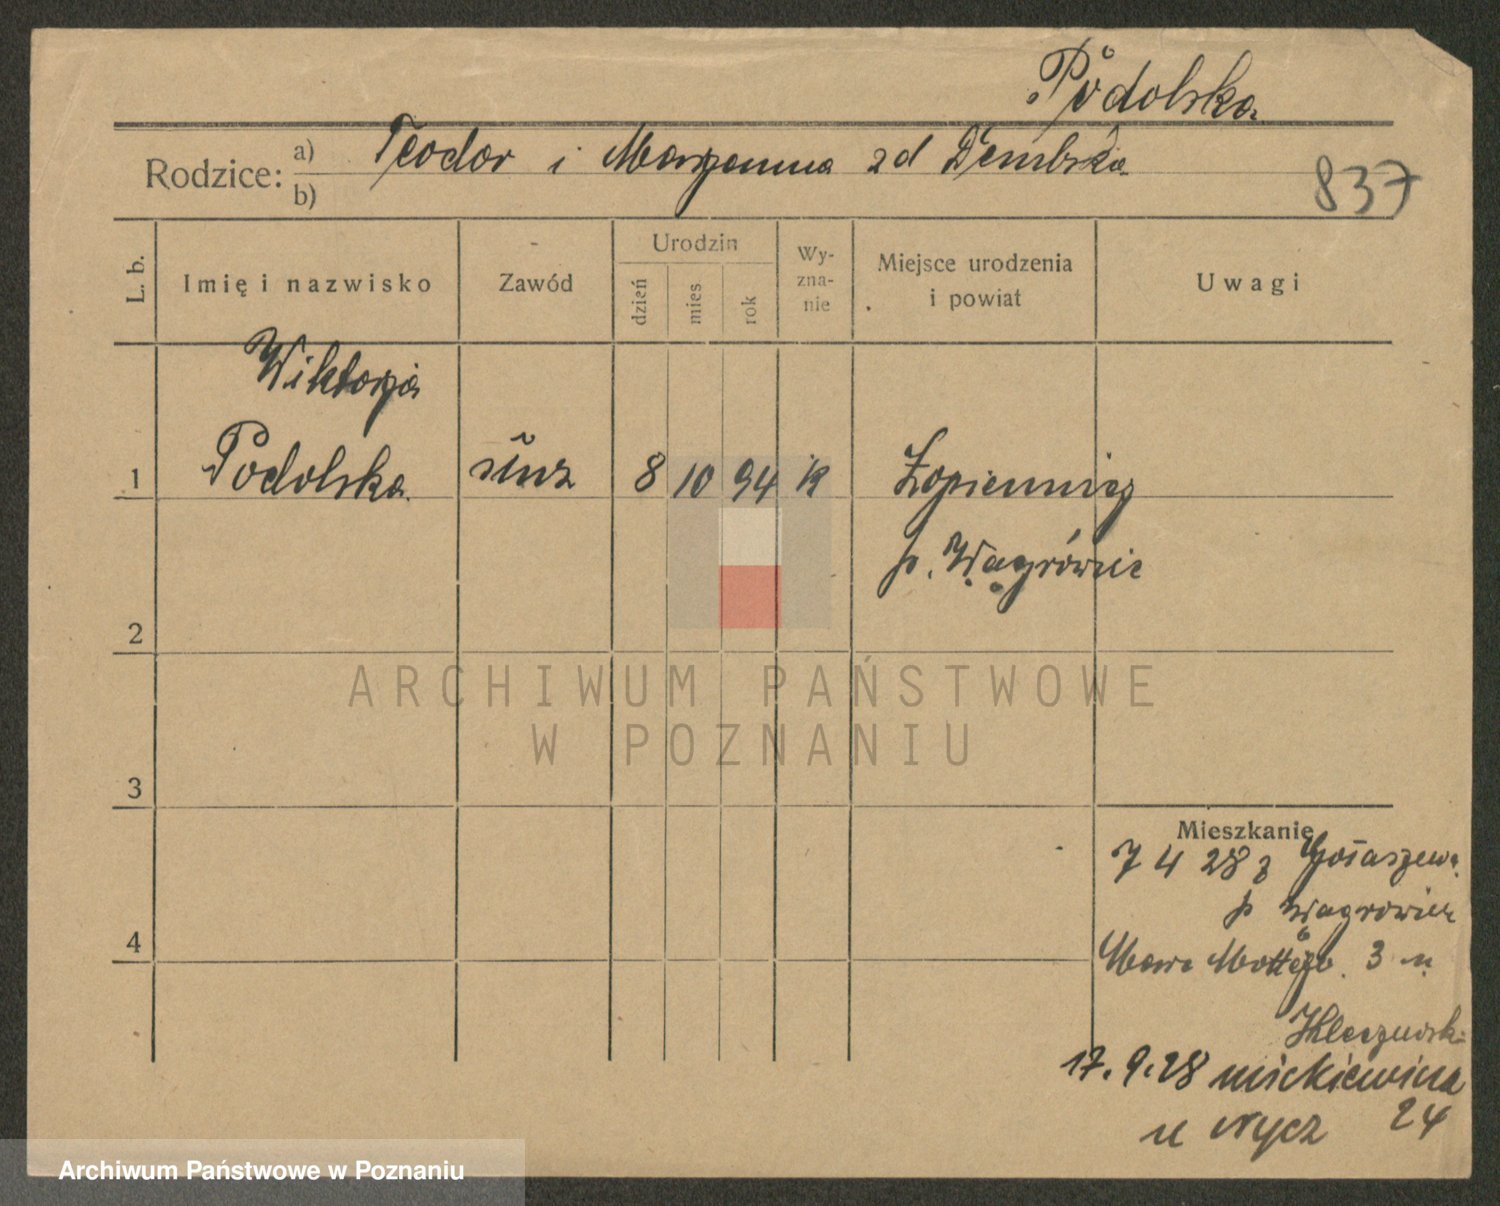 Podolska
Rodzice: a) Teodor i Marjanna zd Dembska
b)
837
L. b. Imię i nazwisko Zawód Urodzin dzień mies rok Wy-zna-nie Miejsce urodzenia i powiat Uwagi
Wiktorja
1 Podolska służ 8 10 94 k Łopienno
p. Wągrówiec
2
ARCHIWUM PAŃSTWOWE
W POZNANIU
3
Mieszkanie
7 4 28 z
p Wągrowiec
4
3 u
17.9.28 Mickiewicza
24
u Nycz
Archiwum Państwowe w Poznaniu